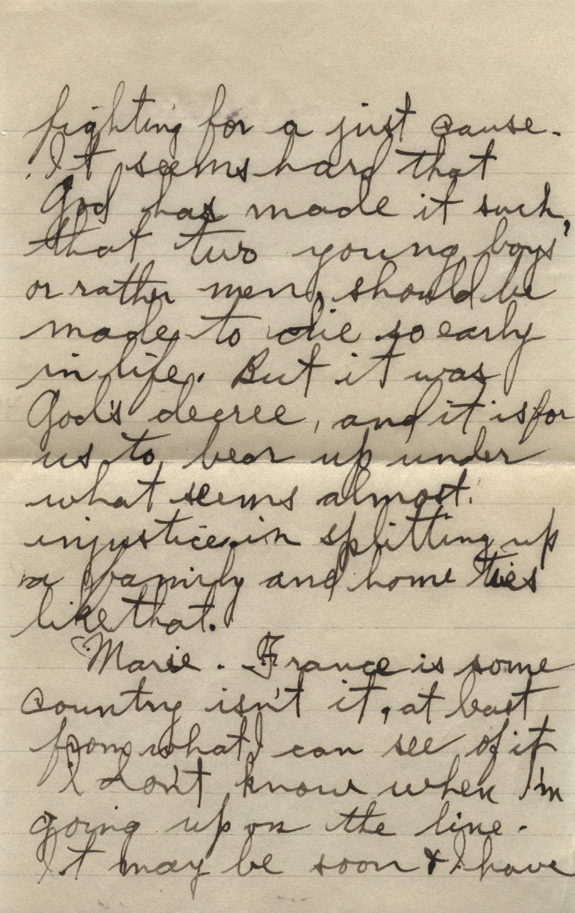 fighting for a just cause.
It seems hard that
God has made it such,
that two young boys
or rather men, should be
made to die so early
in life. But it was
God's decree, and it is for
us to bear up under
what seems almost
injustice in splitting up
a family and home ties
like that.
Marie. France is some
country isn't it, at least
from what I can see of it
I don't know when I'm
going up on the line.
It may be soon & I have